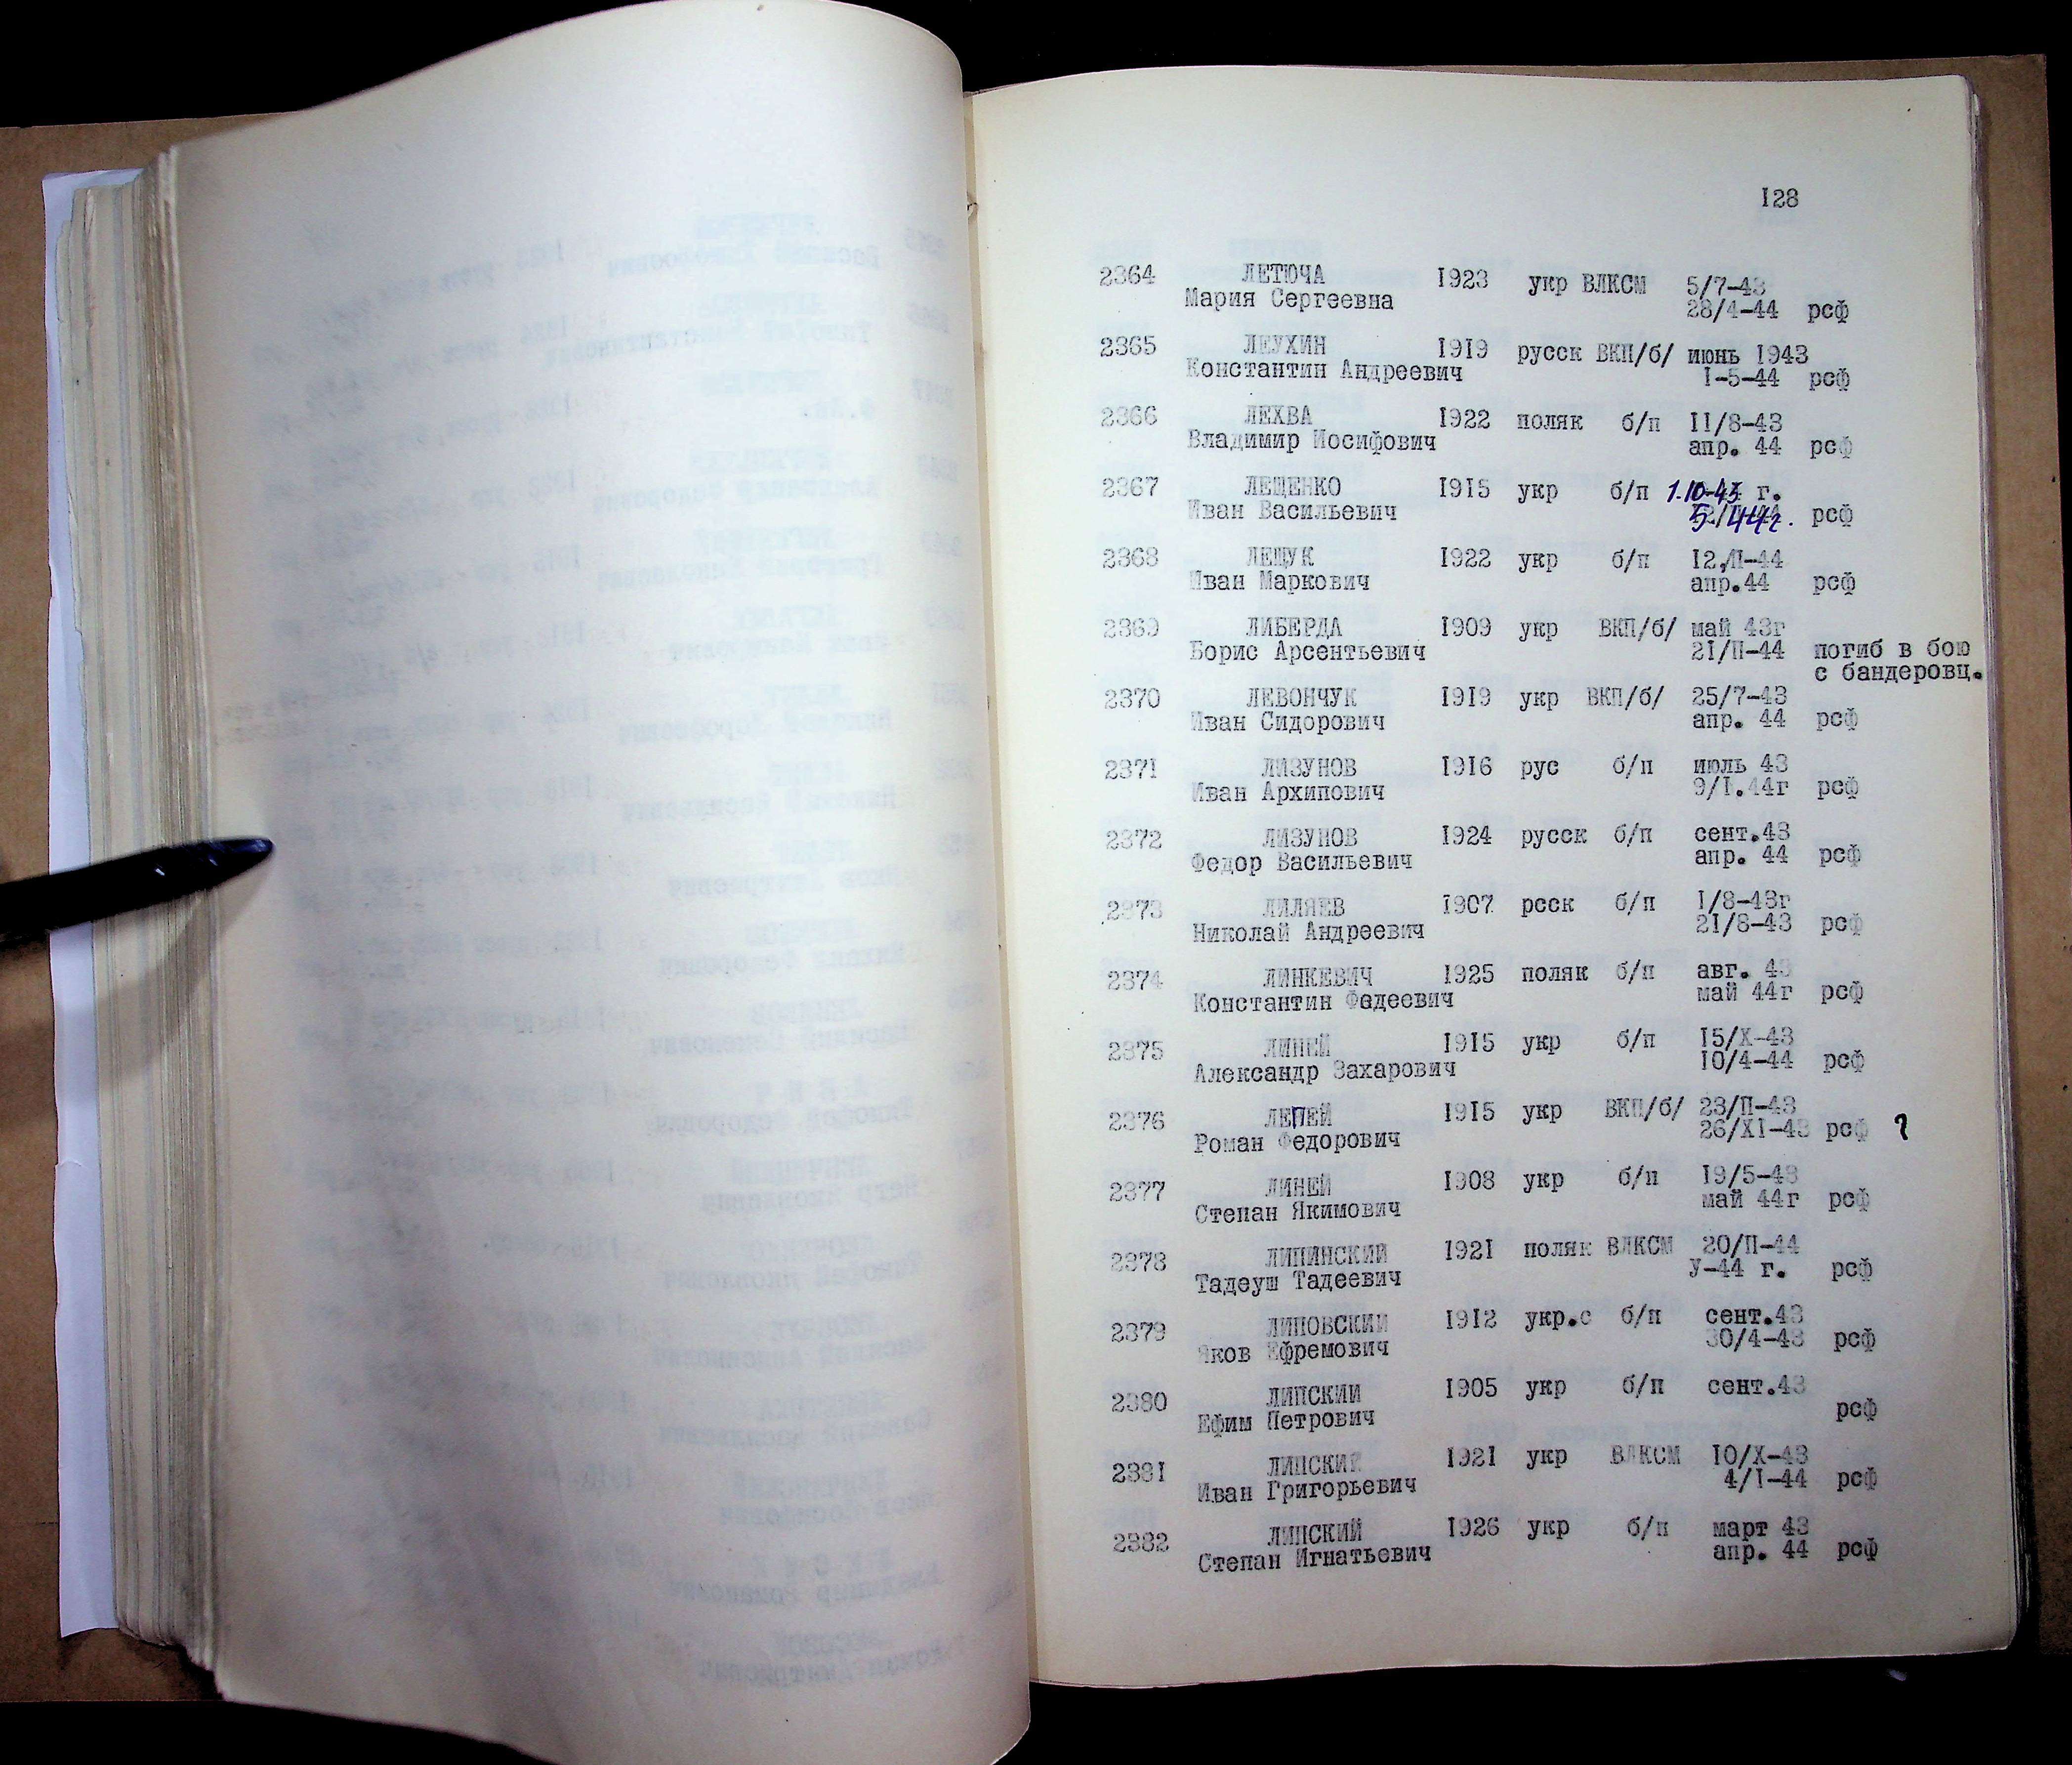 128
2364 ЛЕТЮЧА 1923 укр ВЛКСМ 5/7-43
Мария Сергеевна 28/4-44 рсф
2365 ЛЕУХИН 1919 русск ВКП/б/ июнь 1943
Константин Андреевич 1-5-44 рсф
2366 ЛЕХВА 1922 поляк б/п 11/8-43
Владимир Иосифович апр. 44 рсф
2367 ЛЕЩЕНКО 1915 укр б/п 1.10-43 г.
Иван Васильевич 5.44г. рсф
2368 ЛЕЩУК 1922 укр б/п 12/П-44
Иван Маркович апр.44 рсф
2369 ЛИБЕРДА 1909 укр ВКП/б/ май 43г
Борис Арсентьевич 21/П-44 погиб в бою
с бандеровц.
2370 ЛЕВОНЧУК 1919 укр ВКП/б/ 25/7-43
Иван Сидорович апр. 44 рсф
2371 ЛИЗУНОВ 1916 рус б/п июль 43
Иван Архипович 9/1.44г рсф
2372 ЛИЗУНОВ 1924 русск б/п сент.43
Федор Васильевич апр. 44 рсф
2373 ЛИЛЯЕВ 1907 рсск б/п 1/8-43г
Николай Андреевич 21/8-43 рсф
2374 ЛИНКЕВИЧ 1925 поляк б/п авг. 43
Константин Фадеевич май 44г рсф
2375 ЛИНЕЙ 1915 укр б/п 15/X-43
Александр Захарович 10/4-44 рсф
2376 ЛЕПЕЙ 1915 укр ВКП/б/ 23/П-43
Роман Федорович 26/XI-43 рсф ?
2377 ЛИНЕЙ 1908 укр б/п 19/5-43
Степан Якимович май 44г рсф
2378 ЛИПИНСКИЙ 1921 поляк ВЛКСМ 20/П-44
Тадеуш Тадеевич У-44 г. рсф
2379 ЛИПОВСКИЙ 1912 укр.с б/п сент.43
Яков Ефремович 30/4-43 рсф
2380 ЛИПСКИИ 1905 укр б/п сент.43
Ефим Петрович рсф
2381 ЛИПСКИЙ 1921 укр ВЛКСМ 10/X-43
Иван Григорьевич 4/1-44 рсф
2382 ЛИПСКИЙ 1926 укр б/п март 43
Степан Игнатьевич апр. 44 рсф